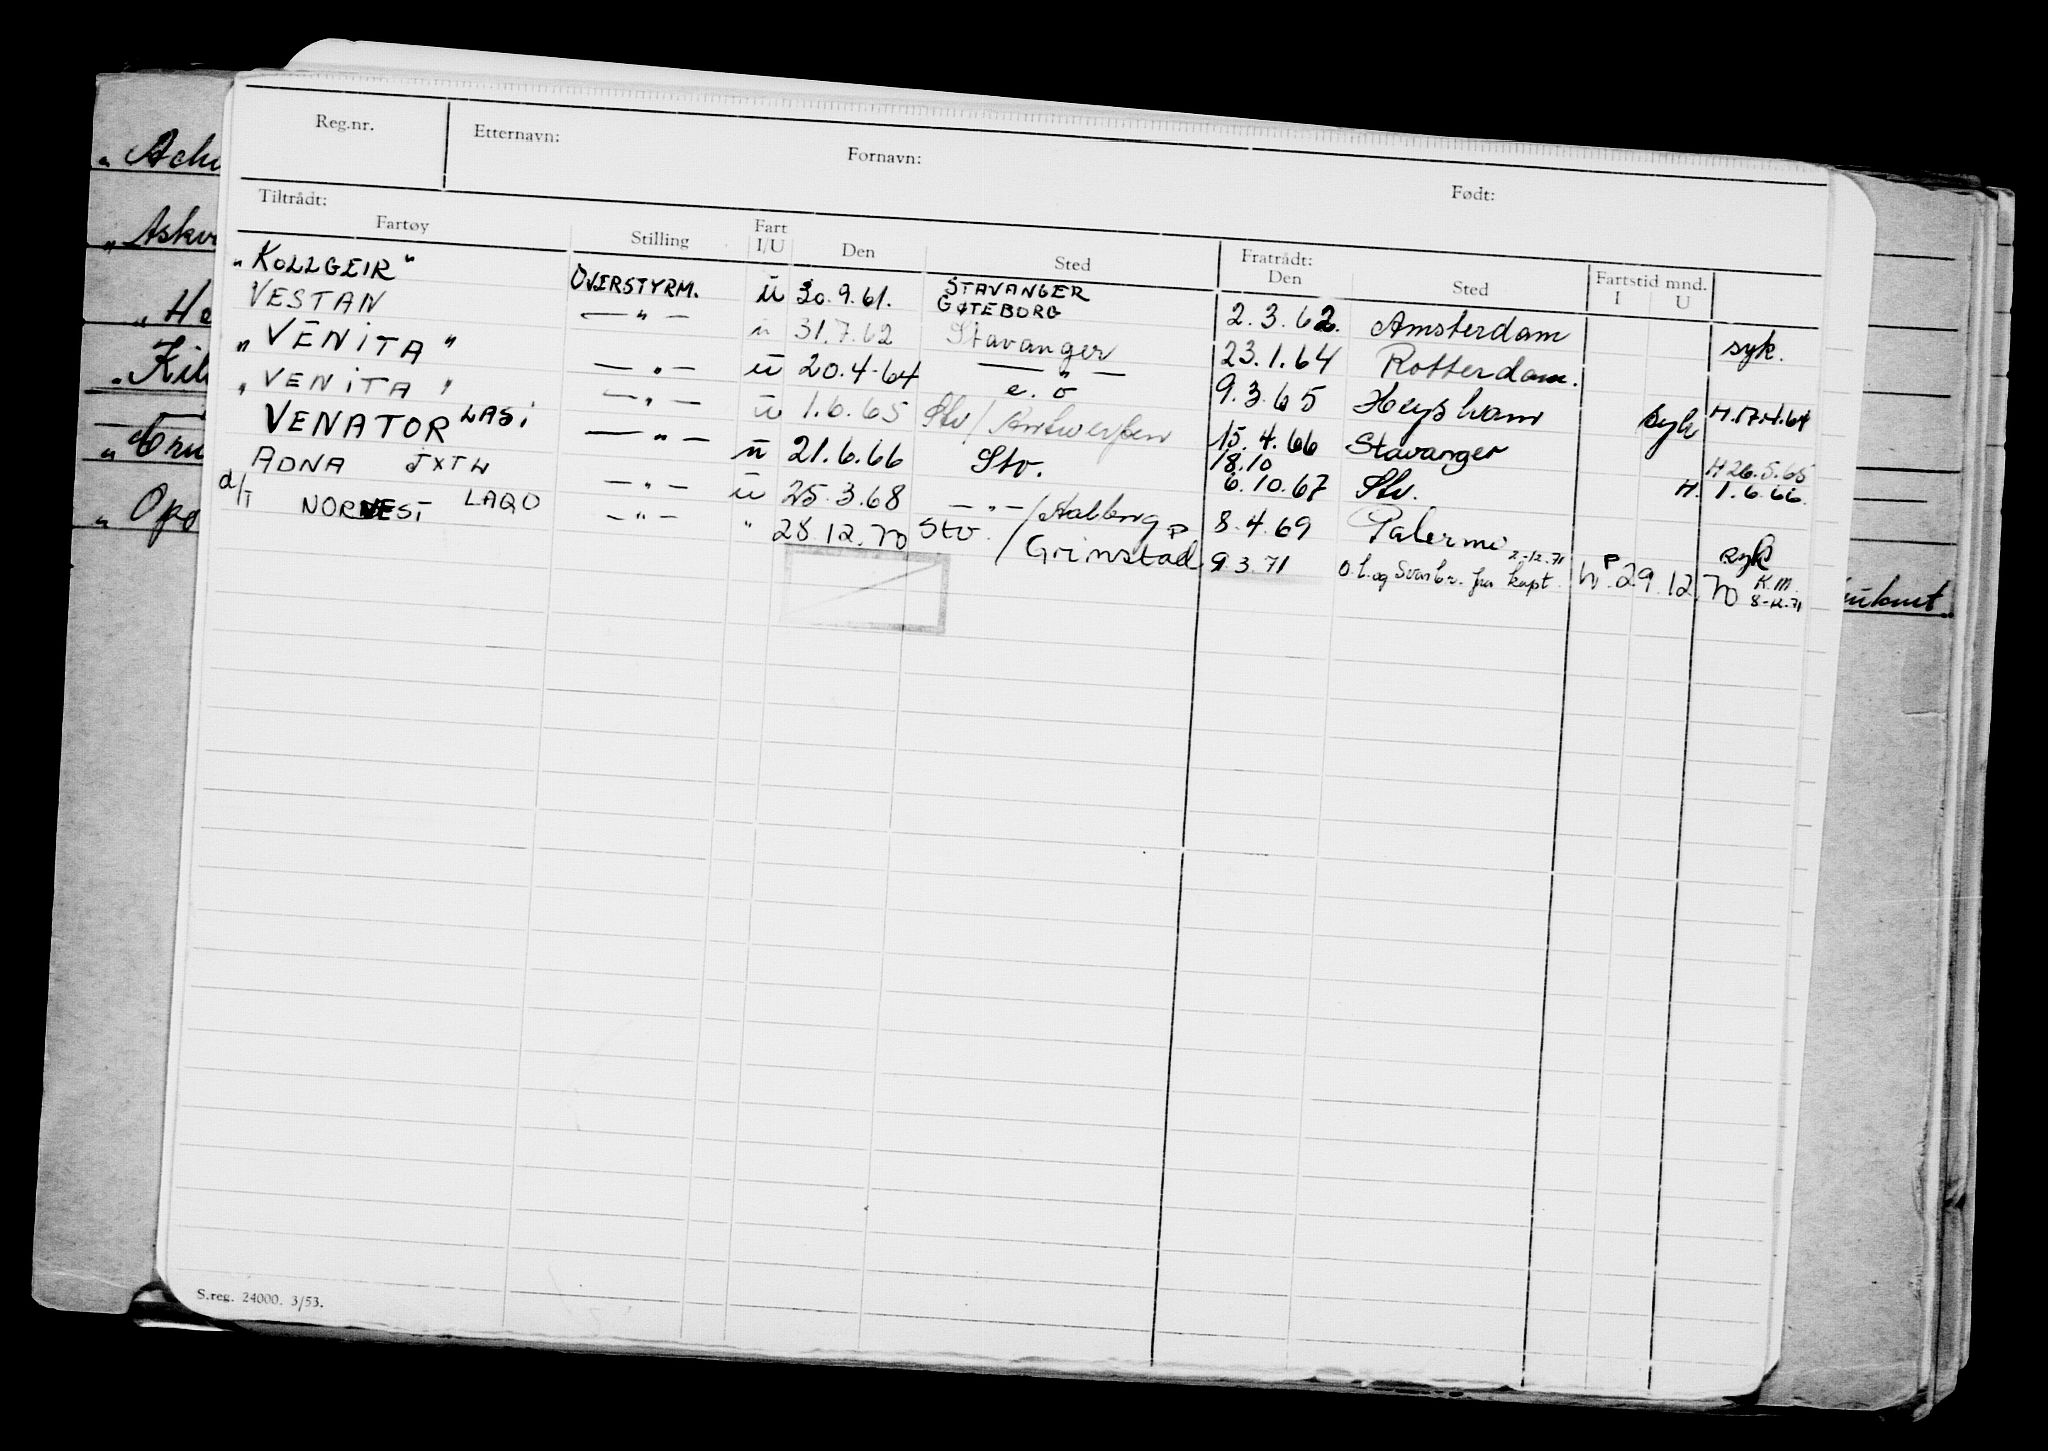 Reg.nr. Etternavn: Fornavn: Født:
Tiltrådt: Fratrådt: Fartstid mnd.
Fartøy Stilling Fart I/U Den Sted Den Sted I U
"KOLLGEIR" OVERSTYRM. u 30.9.61. STAVANGER GØTEBORG 2.3.62. Amsterdam syk.
VESTAN — " — u 31.7.62 Stavanger 23.1.64 Rotterdam.
"VENITA" — " — u 20.4-64 — " — e.o 9.3.65 Heysham syk H.17.4.64
"VENITA" — " — u 1.6.65 Stv/Antwerpen 15.4.66 Stavanger H 26.5.65
VENATOR LASI — " — u 21.6.66 Stv. 18.10 6.10.67 Stv. H. 1.6.66.
ADNA JXTW — " — u 25.3.68 — " —/Aalborg 8.4.69 Palermo syk
d/T NORVEST LAQO — " — " 28.12.70 Stv. /Grimstad P 9.3.71 2-12.71 O.l. og Svarbr. fra kapt. P 29.12.70 K.M. 8-12.71
"Ach
"Askv
"He
"Kil
"Oru
"Opo
S.reg. 24000. 3/53.